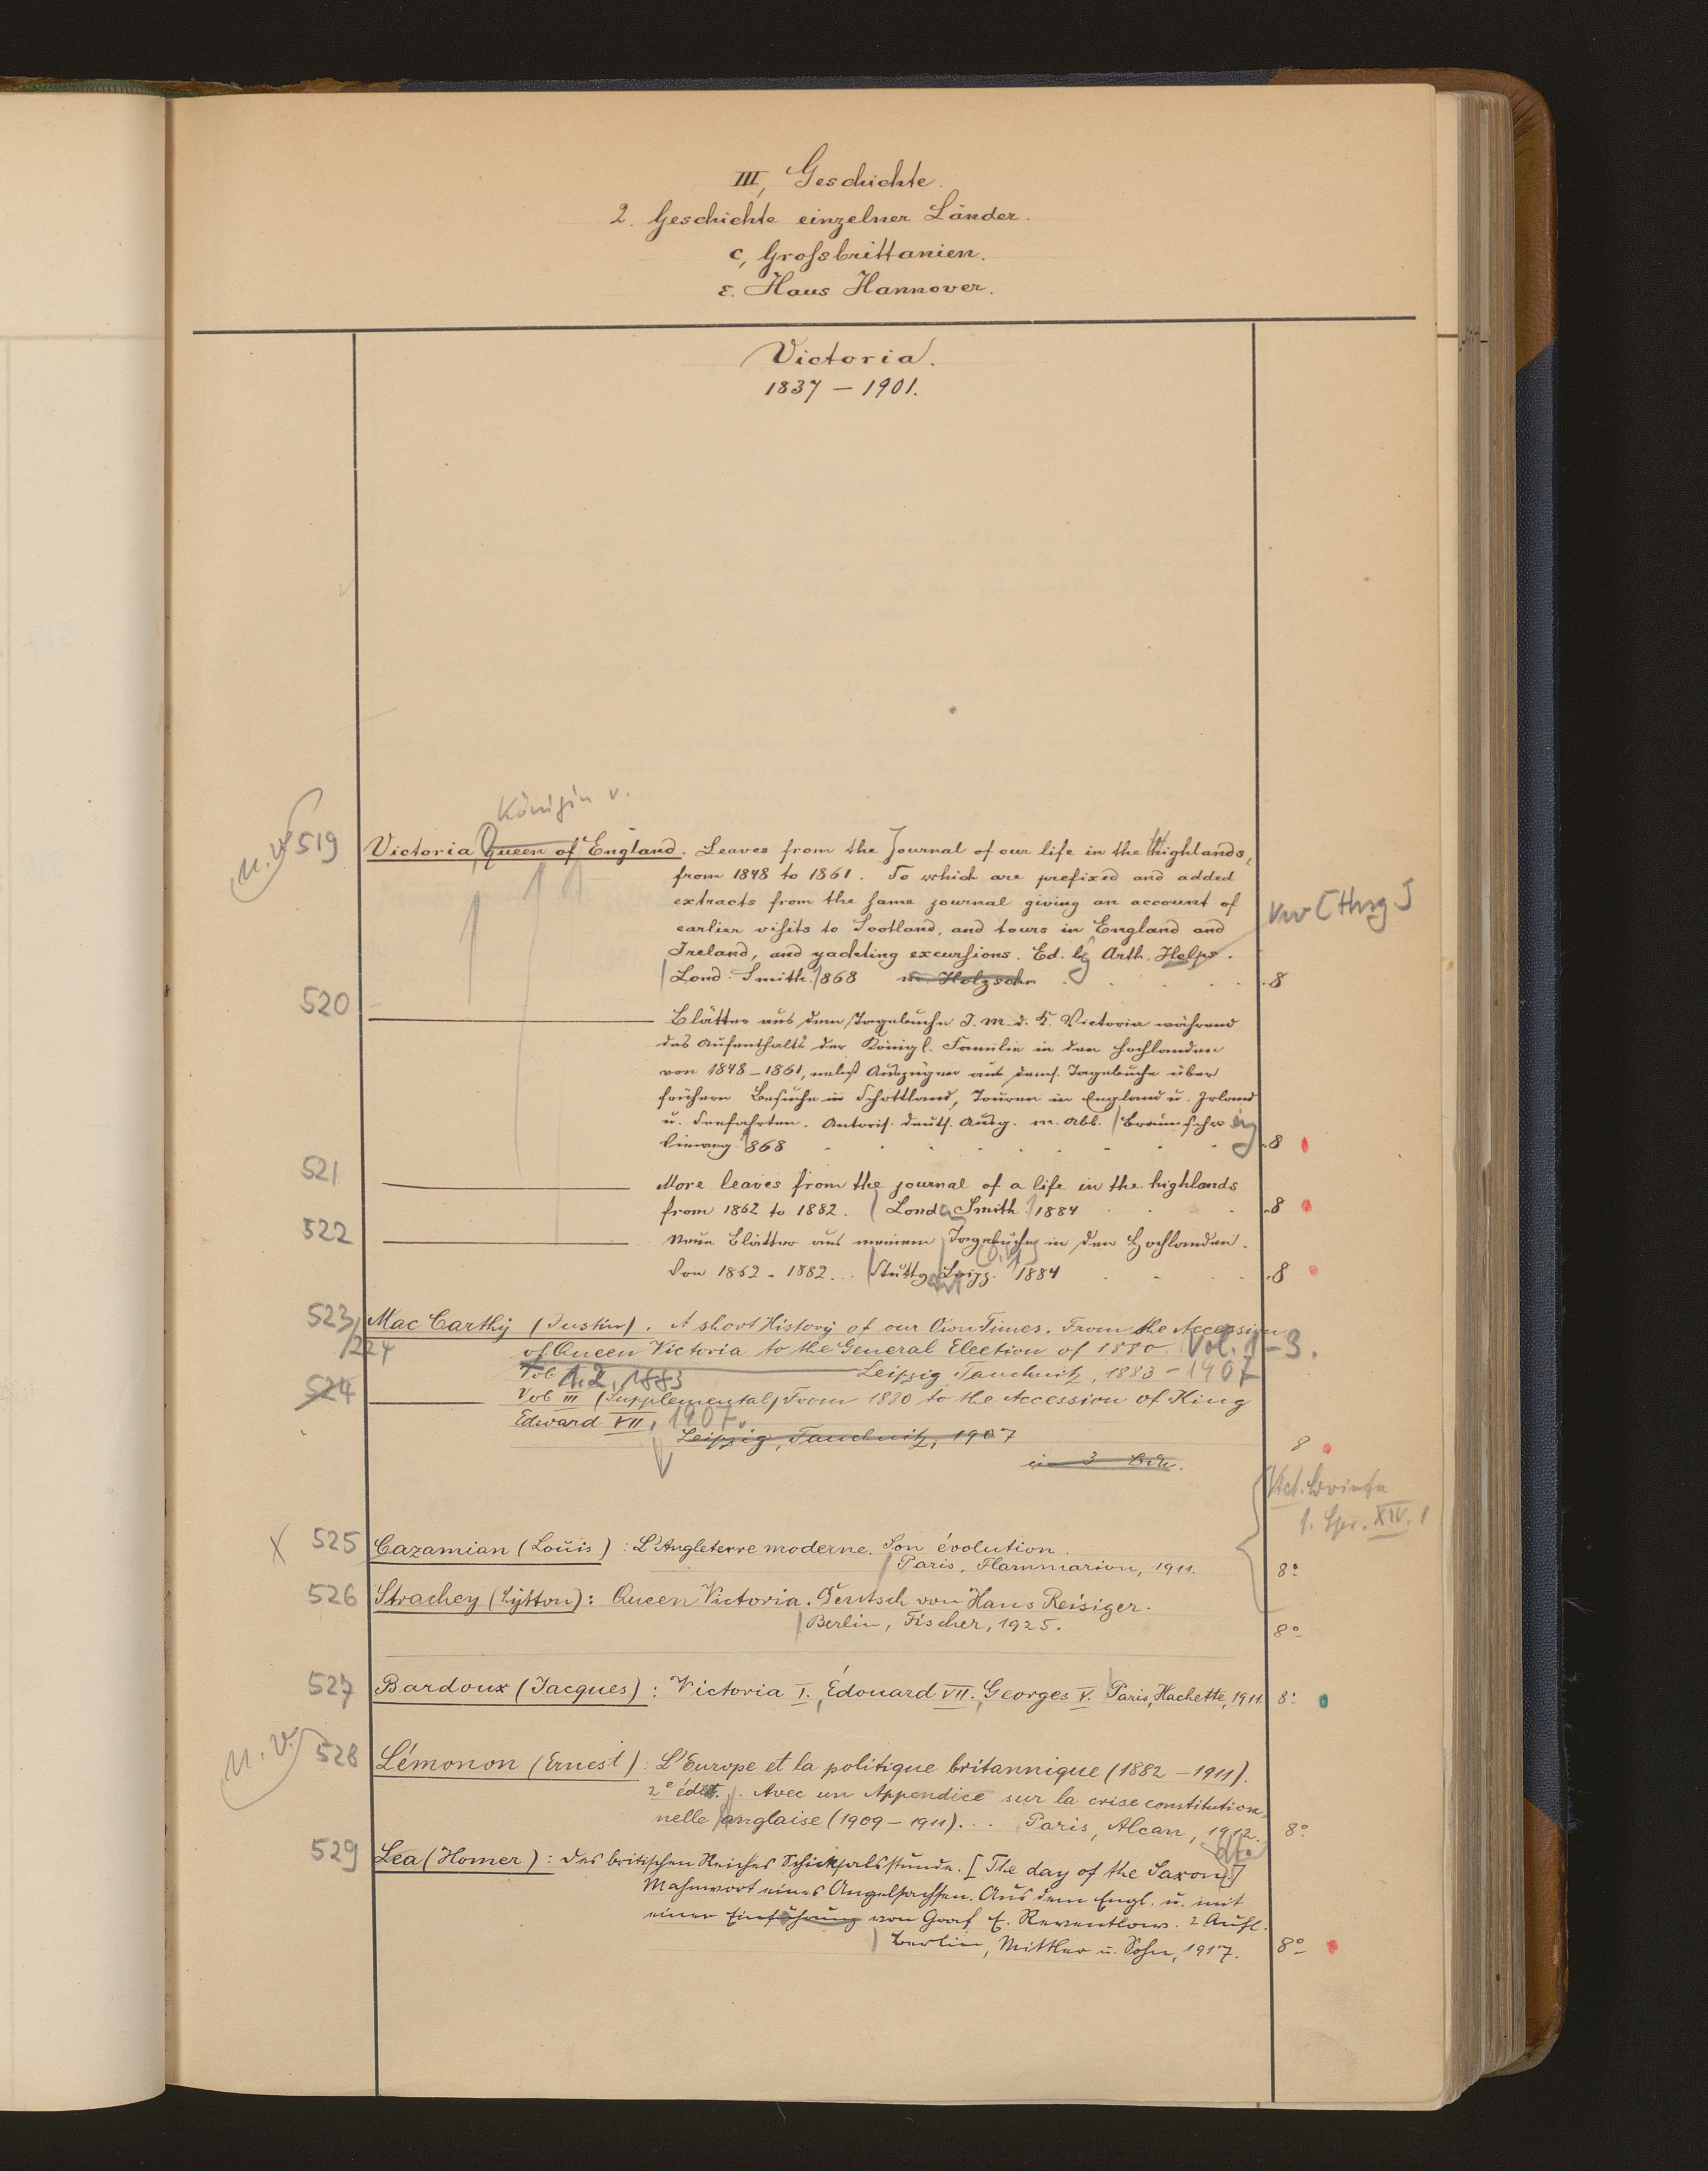 III, Geschichte.
2. Geschichte einzelner Länder.
c, Grossbrittanien.
ε. Haus Hannover.
Victoria.
1837 – 1901.
Königin v.
n. V. 519 Victoria Queen of England. Leaves from the Journal of our life in the Highlands,
from 1848 to 1861. To which are prefixed and added
extracts from the same journal giving an account of
earlier visits to Scotland, and tours in England and
Ireland, and yachting excursions. Ed. by Arth. Helps.
Vw [Hrsg]
Lond: Smith. 1868 m. Holzschn 8
520 ——— Blätter aus dem Tagebuche I. M. d. K. Victoria während
des Aufenthalts der Königl. Familie in den Hochlanden
von 1848–1861, nebst Auszügen aus dems. Tagebuche über
frühere Besuche in Schottland, Touren in England u. Irland
u. Seefahrten. Autoris. deuts. Ausg. m. Abb. Braunschweig
Vieweg 1868 8
521 ——— More leaves from the journal of a life in the highlands
from 1862 to 1882. London Smith. 1884 8
522 ——— Neue Blätter aus meinem Tagebuche in den Hochlanden.
Von 1862 – 1882... Stuttg. Leipz. 1884 8
523/224 Mac Carthy (Justin). A short History of our Own Times. From the Accession
of Queen Victoria to the General Election of 1880. Vol. 1–3.
Vol 1.2, 1883 ——— Leipzig, Tauchnitz, 1883 – 1907
524 ——— Vol III (Supplemental) From 1880 to the Accession of King
Edward VII, 1907.
Leipzig, Tauchnitz, 1907
8
in 3 Bdn.
Vict. Briefe
1. Spr. XIV. 1
X 525 Cazamian (Louis): L'Angleterre moderne. Son évolution.
Paris, Flammarion, 1911. 8°
526 Strachey (Lytton): Queen Victoria. Deutsch von Hans Reisiger.
Berlin, Fischer, 1925. 8°
527 Bardoux (Jacques): Victoria I., Édouard VII., Georges V. Paris, Hachette, 1911. 8°
n. V. 528 Lémonon (Ernest): L'Europe et la politique britannique (1882 – 1911).
2e édit. Avec un Appendice sur la crise constitution-
nelle anglaise (1909 – 1911)... Paris, Alcan, 1912. 8°
529 Lea (Homer): Des britischen Reiches Schicksalsstunde. [The day of the Saxon, dt.]
Mahnwort eines Angelsachsen. Aus dem Engl. u. mit
einer Einführung von Graf E. Reventlow. 2 Aufl.
Berlin, Mittler u. Sohn, 1917. 8°